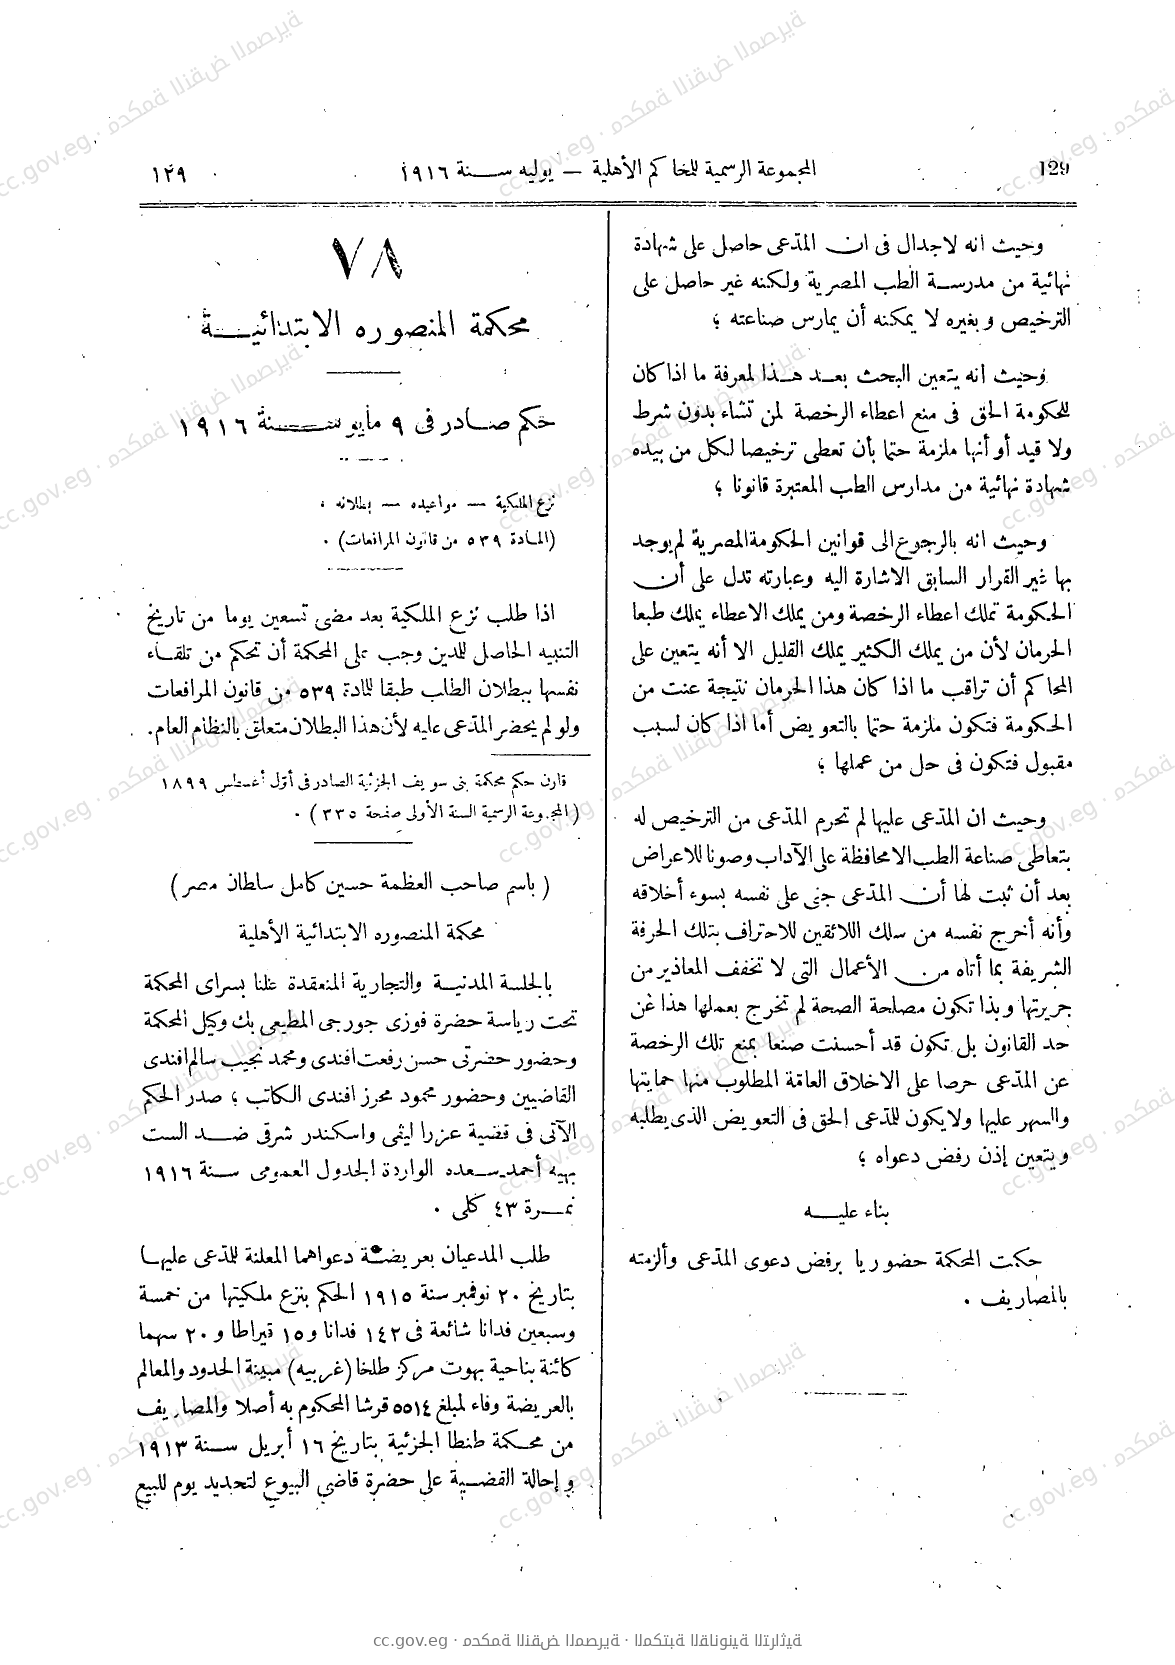 129
المجموعة الرسمية للمحاكم الأهلية — يوليه سنة ١٩١٦
١٢٩
وحيث انه لاجدال فى ان المدّعى حاصل على شهادة
نهائية من مدرسة الطب المصرية ولكنه غير حاصل على
الترخيص وبغيره لا يمكنه أن يمارس صناعته ؛
وحيث انه يتعين البحث بعد هذا لمعرفة ما اذا كان
للحكومة الحق فى منع اعطاء الرخصة لمن تشاء بدون شرط
ولا قيد أو أنها ملزمة حتما بأن تعطى ترخيصا لكل من بيده
شهادة نهائية من مدارس الطب المعتبرة قانونا ؛
وحيث انه بالرجوع الى قوانين الحكومة المصرية لم يوجد
بها غير القرار السابق الاشارة اليه وعبارته تدل على أن
الحكومة تملك اعطاء الرخصة ومن يملك الاعطاء يملك طبعا
الحرمان لأن من يملك الكثير يملك القليل الا أنه يتعين على
المحاكم أن تراقب ما اذا كان هذا الحرمان نتيجة عنت من
الحكومة فتكون ملزمة حتما بالتعويض أما اذا كان لسبب
مقبول فتكون فى حل من عملها ؛
وحيث ان المدّعى عليها لم تحرم المدّعى من الترخيص له
بتعاطى صناعة الطب الا محافظة على الآداب وصونا للاعراض
بعد أن ثبت لها أن المدّعى جنى على نفسه بسوء أخلاقه
وأنه أخرج نفسه من سلك اللائقين للاحتراف بتلك الحرفة
الشريفة بما أتاه من الأعمال التى لا تخفف المعاذير من
جريرتها وبذا تكون مصلحة الصحة لم تخرج بعملها هذا عن
حد القانون بل تكون قد أحسنت صنعا بمنع تلك الرخصة
عن المدّعى حرصا على الاخلاق العامّة المطلوب منها حمايتها
والسهر عليها ولايكون للمدّعى الحق فى التعويض الذى يطلبه
ويتعين إذن رفض دعواه ؛
بناء عليه
حكمت المحكمة حضوريا برفض دعوى المدّعى وألزمته
بالمصاريف .
٧٨
محكمة المنصوره الابتدائية
حكم صادر فى ٩ مايو سنة ١٩١٦
نزع الملكية — مواعيده — بطلانه .
(المادة ٥٣٩ من قانون المرافعات) .
اذا طلب نزع الملكية بعد مضى تسعين يوما من تاريخ
التنبيه الحاصل للمدين وجب على المحكمة أن تحكم من تلقاء
نفسها ببطلان الطلب طبقا للمادة ٥٣٩ من قانون المرافعات
ولو لم يحضر المدّعى عليه لأن هذا البطلان متعلق بالنظام العام.
قارن حكم محكمة بنى سويف الجزئية الصادر فى أوّل أغسطس ١٨٩٩
(المجموعة الرسمية السنة الأولى صفحة ٣٣٥) .
( باسم صاحب العظمة حسين كامل سلطان مصر )
محكمة المنصوره الابتدائية الأهلية
بالجلسة المدنية والتجارية المنعقدة علنا بسراى المحكمة
تحت رياسة حضرة فوزى جورجى المطيعى بك وكيل المحكمة
وحضور حضرتى حسن رفعت افندى ومحمد نجيب سالم افندى
القاضيين وحضور محمود محرز افندى الكاتب ؛ صدر الحكم
الآتى فى قضية عزرا ليثى واسكندر شرقى ضد الست
بهيه أحمد سعده الواردة الجدول العمومى سنة ١٩١٦
نمرة ٤٣ كلى .
طلب المدعيان بعريضة دعواهما المعلنة للمدّعى عليها
بتاريخ ٢٠ نوفمبر سنة ١٩١٥ الحكم بنزع ملكيتها من خمسة
وسبعين فدانا شائعة فى ١٤٢ فدانا و١٥ قيراطا و٢٠ سهما
كائنة بناحية بهوت مركز طلخا (غربيه) مبينة الحدود والمعالم
بالعريضة وفاء لمبلغ ٥٥١٤ قرشا المحكوم به أصلا والمصاريف
من محكمة طنطا الجزئية بتاريخ ١٦ أبريل سنة ١٩١٣
وإحالة القضية على حضرة قاضى البيوع لتحديد يوم للبيع
cc.gov.eg · محكمة النقض المصرية · المكتبة القانونية التراثية